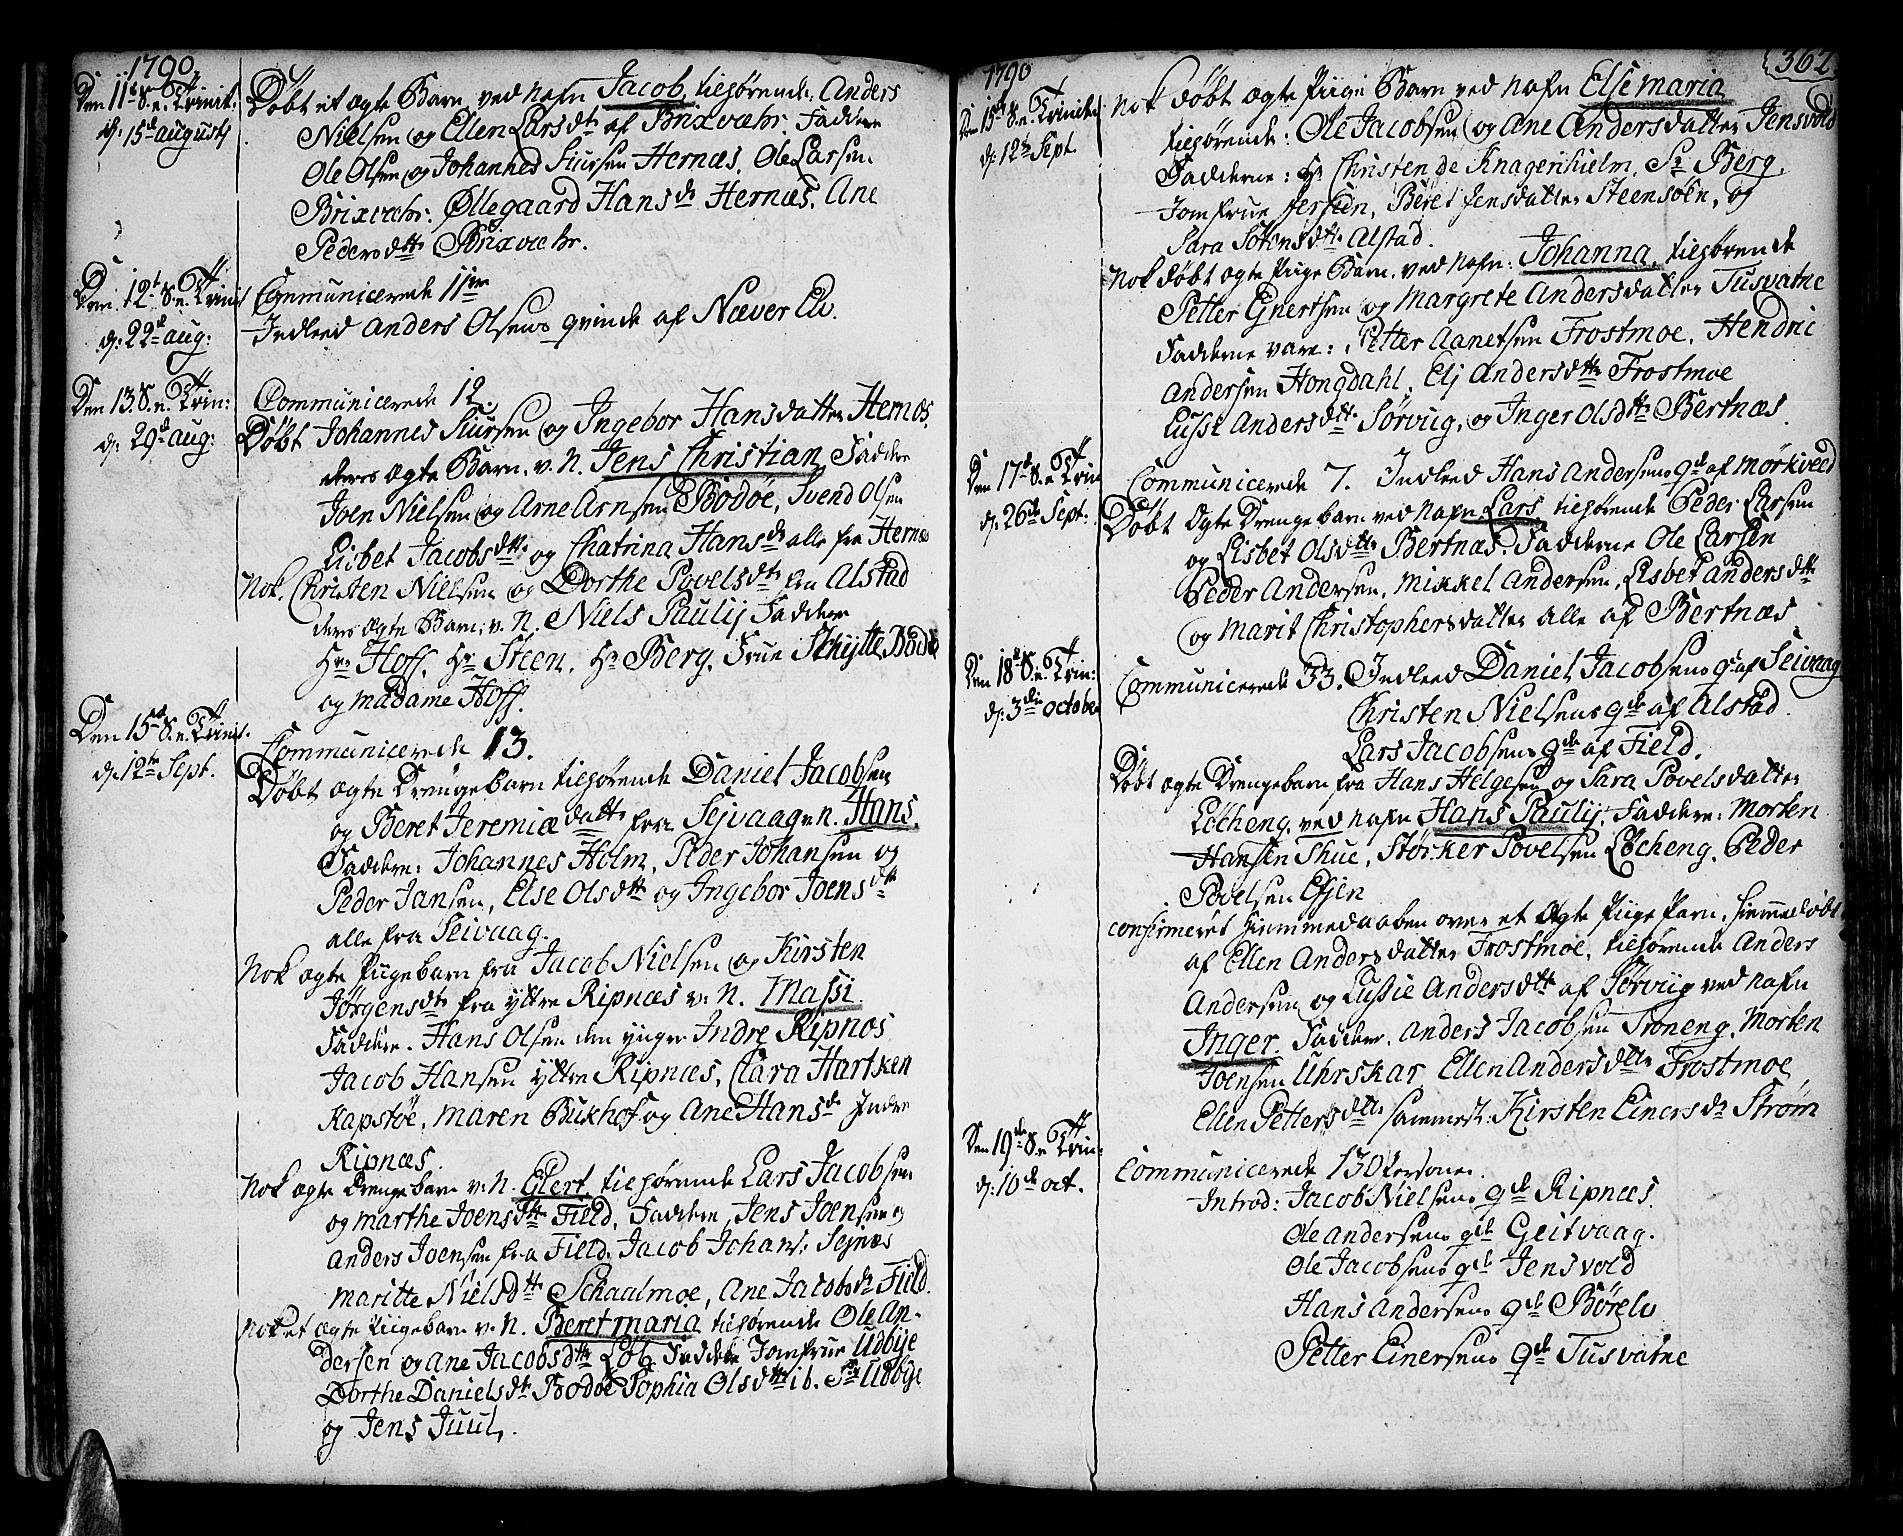 1790
Den 11te S. e. Trinit:
d. 15de augusti
Døbt et ægte Barn ved Nafn Jacob, tilhørende, Anders
Nielsen og Ellen Larsdtr af Brixvæhr. Faddere
Ole Olsen og Johannes Siursen Hernæs, Ole Larsen
Brixvæhr: Øllegaard Hansdr Hernæs, Ane
Pedersdtr Brixvæhr.
Den 12te S. e. Trinit
d: 22de aug:
Communicerede 11ve
Indleed Anders Olsens qvinde af Næver Elv.
Den 13. S. e. Trin:
d: 29de aug:
Communicerede 12.
Døbt Johannes Siursen og Ingebor Hansdatter Hernæs,
deres ægte Barn, v. N. Jens Christian, Faddere
Joen Nielsen og Arne Arnsen Bodøe, Svend Olsen
Lisbet Jacobsdtr og Chatrina Hansdr alle fra Hernæs
Nok, Christen Nielsen og Dorthe Povelsdtr fra Alstad
deres ægte Barn, v. N. Niels Paulij Faddere
Hr Hoff, Hr Steen, Hr Berg, Frue Schytte, Bodøe
og Madame Hoff.
Den 15de S. e. Trinit.
d. 12te Sept.
Communicerede 13.
Døbt ægte Drengebarn tilhørende Daniel Jacobsen
og Beret Jeremiædatter fra Sejvaag v. N. Hans
Faddere: Johannes Holm, Peder Johansen og
Peder Jansen, Else Olsdtr og Ingebor Joensdtr
alle fra Seivaag.
Nok ægte Pigebarn fra Jacob Nielsen og Kirsten
Jørgensdtr fra yttre Ripnæs v: N. Massi.
Faddere. Hans Olsen den yngre Indre Ripnæs
Jacob Hansen yttre Ripnæs, Clara Hartken
Kapstøe, Maren Bukhof og Ane Hansdr Indre
Ripnæs.
Nok ægte Drengebarn v: N. Elert tilhørende Lars Jacobsen
og Marthe Joensdtr Field, Faddere, Jens Joensen og
Anders Joensen fra Field. Jacob Johans: Sejnæs
Maritte Nielsdtr Schaalmoe, Ane Jacobsdr Field.
Nok et ægte Pigebarn v: N. Beret maria tilhørende Ole An-
dersen og Ane Jacobsdtr Løb, Faddere Jomfrue Udbije
Dorthe Danielsdtr Bodøe Sophia Olsdtr ib. Sr Udbije
og Jens Juul.
1790
362
Den 15de S. e. Trinitat:
d: 12te Sept.
Nok døbt ægte Piige Barn ved Nafn Else maria
tilhørende: Ole Jacobsen og Ane Andersdatter Jensvold
Fadderne: Hr Christen de Knagenhielm, Sr Berg,
Jomfrue Jersin, Beret Jensdatter Steensøen, og
Sara Sørensdtr Alstad.
Nok døbt ægte Piige Barn ved Nafn: Johanna, tilhørende
Petter Ejnertsen og Margrete Andersdatter Tusvatne
Fadderne vare: Petter Aanetsen Frostmoe, Hendric
Andersen Hongdahl, Elj Andersdtr Frostmoe
Lusse Andersdtr Sørvig, og Inger Olsdtr Bertnæs.
Den 17de S. e. Trin
d: 26de Sept:
Communicerede 7. Indleed Hans Andersens qde af Mørkved
Døbt ægte Drengebarn ved Nafn Lars tilhørende Peder Larsen
og Lisbet Olsdtr Bertnæs. Fadderne Ole Larsen
Peder Andersen, Mikkel Andersen, Lisbet Andersdtr
og Marit Christophersdatter alle af Bertnæs
Den 18de S. e. Trin:
d: 3die october
Communicerede 33. Indleed Daniel Jacobsens qde af Seivaag
Christen Nielsens qde af Alstad.
Lars Jacobsens qde af Field.
Døbt ægte Drengebarn fra Hans Helgesen og Sara Povelsdatter
Løcheng, ved Nafn Hans Paulij, Faddere: Morten
Hansen Thue, Størker Povelsen Løcheng, Peder
Povelsen Esjen
Confirmeret hiemmedaaben over et ægte Piige Barn, hiemmedøbt
af Ellen Andersdatter Frostmoe, tilhørende Anders
Andersen og Lussie Andersdtr af Sørviig ved Nafn
Inger. Faddere, Anders Jacobsen Troneng, Morten
Joensen Uhrskar, Ellen Andersdtr Frostmoe
Ellen Pettersdtr sammest. Kirsten Einersdtr Strøm
Den 19de S. e. Trin:
d: 10de oct.
Communicerede 130 Personer
Introd: Jacob Nielsens qde Ripnæs.
Ole Andersens qde Geitvaag.
Ole Jacobsens qde Jensvold
Hans Andersens qde Børelv
Petter Einersens qde Tusvatne